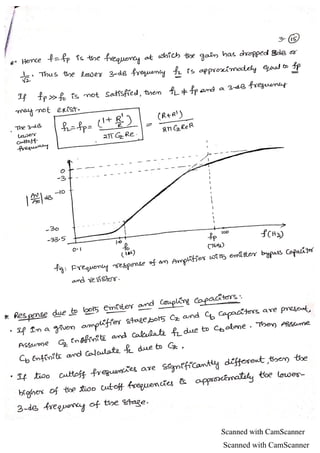 ⑮
* Hence f=fp is the frequency at which the gain has dropped 3dB or
1/√2. Thus the lower 3-dB frequency fL is approximately equal to fp
If fp>>fo is not satisfied, then fL ≠ fp and a 3-dB frequency
may not exist.
• The 3-dB lower cutoff frequency fL = fp = (1 + R'/R) / 2π CE Re = (R+R') / 2π CE Re R
0
-3
|AV/Ao| dB
-10
-30
-33.5
0.1 100 fo fp 200 f(Hz)
fig: Frequency response of an Amplifier with emitter bypass Capacitor
and resistor.
* Response due to both Emitter and Coupling Capacitors:
• If in a given amplifier stage, both CE and Cb capacitors are present,
Assume CE infinite and calculate fL due to Cb alone. Then Assume
Cb infinite and calculate fL due to CE.
• If two cutoff frequencies are significantly different, then the
higher of the two cutoff frequencies is approximately the lower-
3-dB frequency of the stage.
Scanned with CamScanner
Scanned with CamScanner